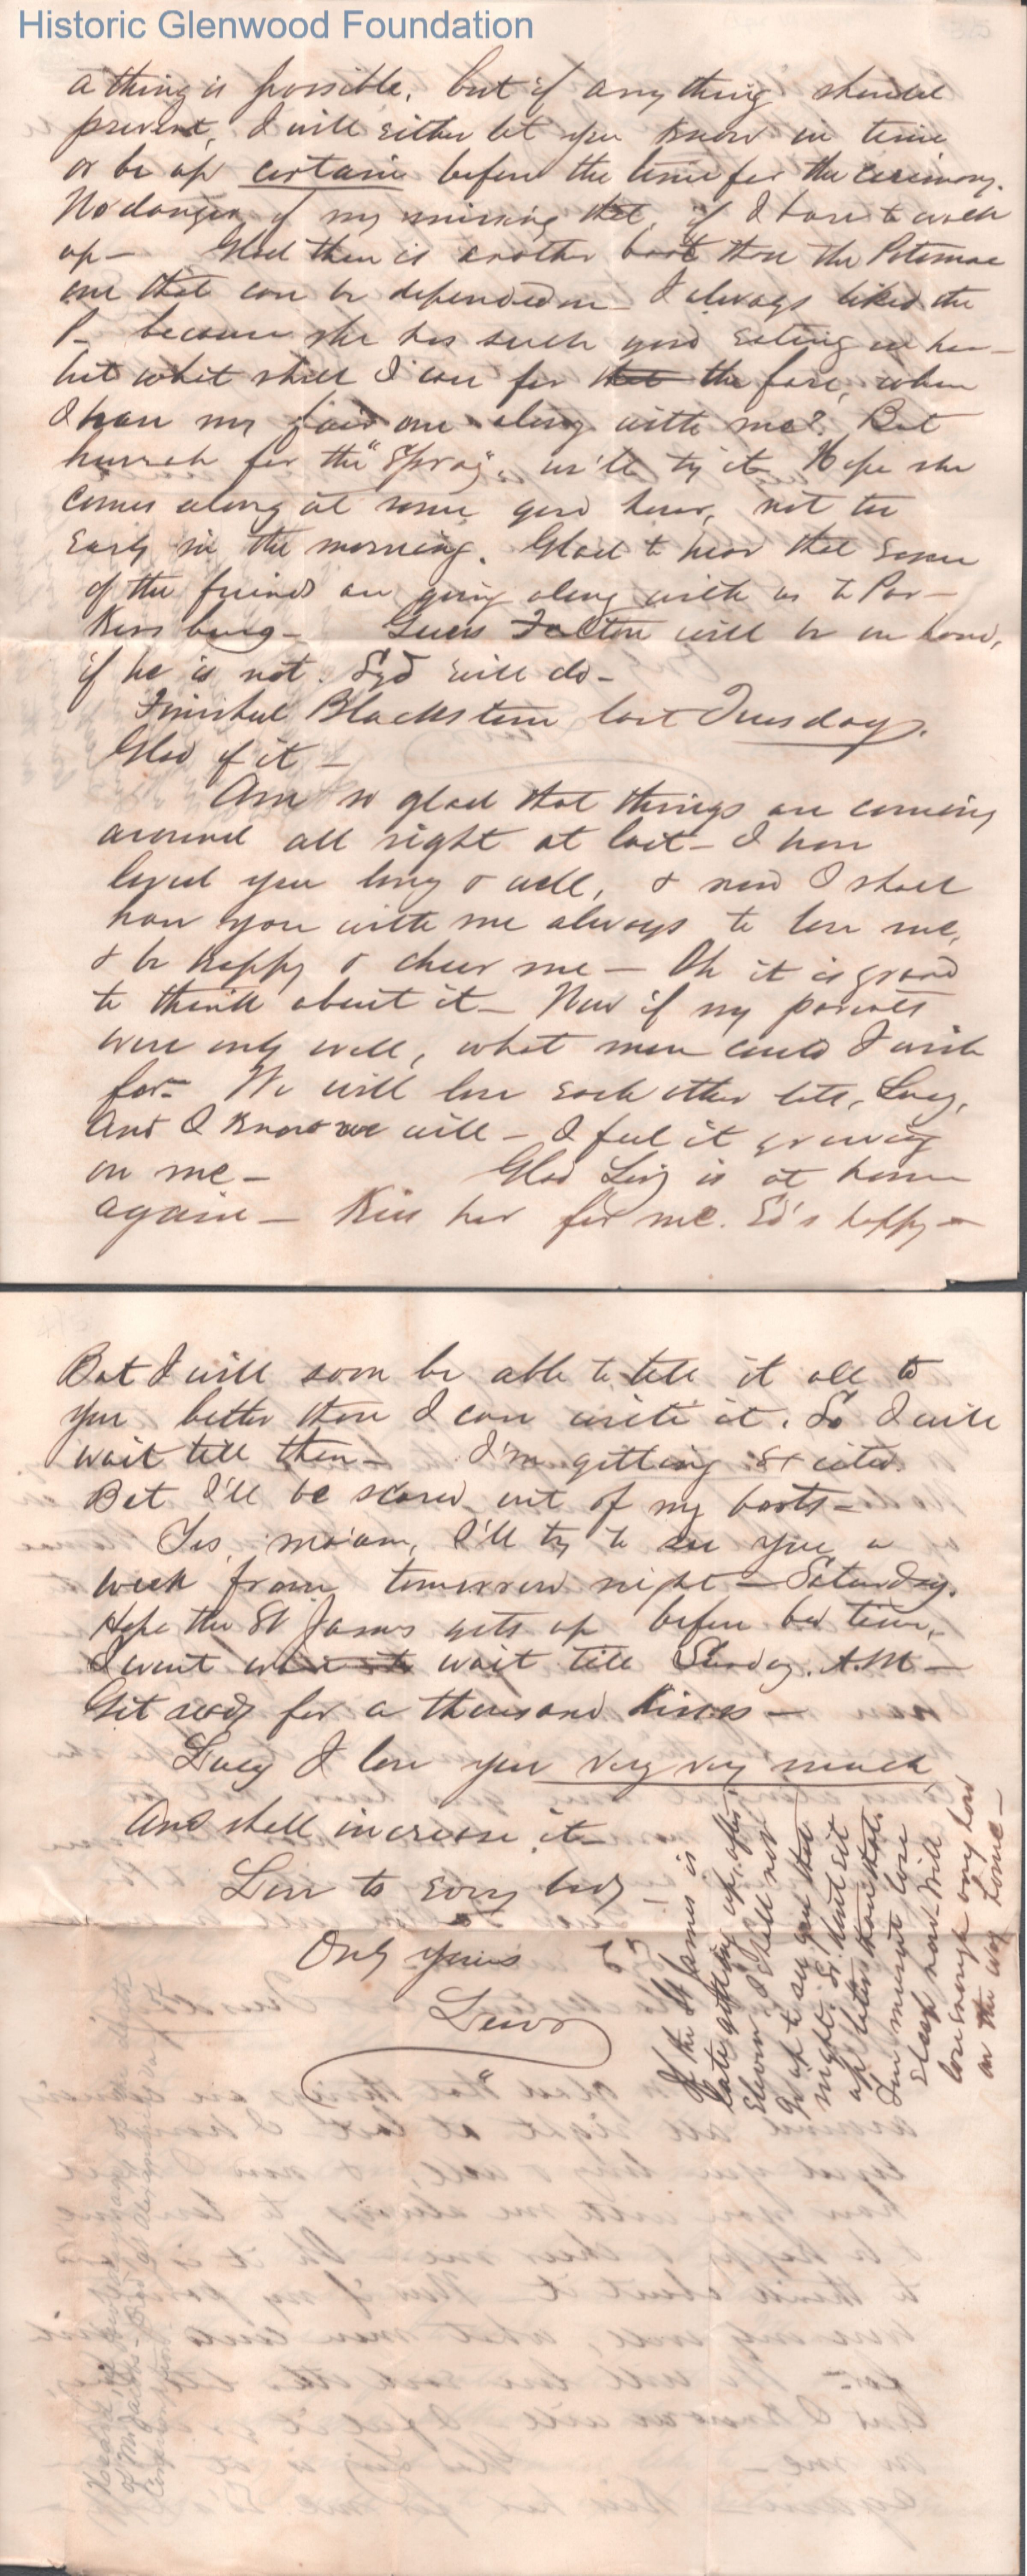 Historic Glenwood Foundation
a thing is possible, but if any thing should
prevent, I will either let you know in time
or be up certain before the time for the ceremony.
No danger of my missing that, if I have to walk
up— Glad there is another boat than the Potomac
one that can be depended on— I always liked the
P— because she has such good eating on her—
but what shall I care for that the fare, when
I have my fair one along with me? But
hurrah for the "Spray", we'll try it— Hope she
comes along at some good hour, not too
early in the morning. Glad to hear that some
of the friends are going along with us to Par—
kersburg— Guess Fulton will be on hand,
if he is not. Syd will do—
Finished Blackstone last Tuesday.
Glad of it—
Am so glad that things are coming
around all right at last— I have
loved you long & well, & now I shall
have you with me always to love me,
& be happy & cheer me— Oh it is grand
to think about it— Now if my parents
were only well, what more could I wish
for— We will love each other lots, Lucy,
And I know we will— I feel it growing
on me— Glad Liz is at home
again— Kiss her for me. Ed's happy—
But I will soon be able to tell it all to
you better than I can write it. So I will
wait till then— I'm getting excited.
But I'll be scared out of my boots—
Yes, ma'am, I'll try to see you a
week from tomorrow night— Saturday.
Hope the St James gets up before bed time,
I want to wait till Sunday. A.M—
Get ready for a thousand kisses—
Lucy I love you very very much,
And shall increase it—
Love to every body—
Only yours
Lewis
If the St James is
late getting up, after
Eleven I shall not
go up to see you that
night. So don't sit
up later than that.
You mustn't lose
sleep now. Will
lose enough any how
on the way home—